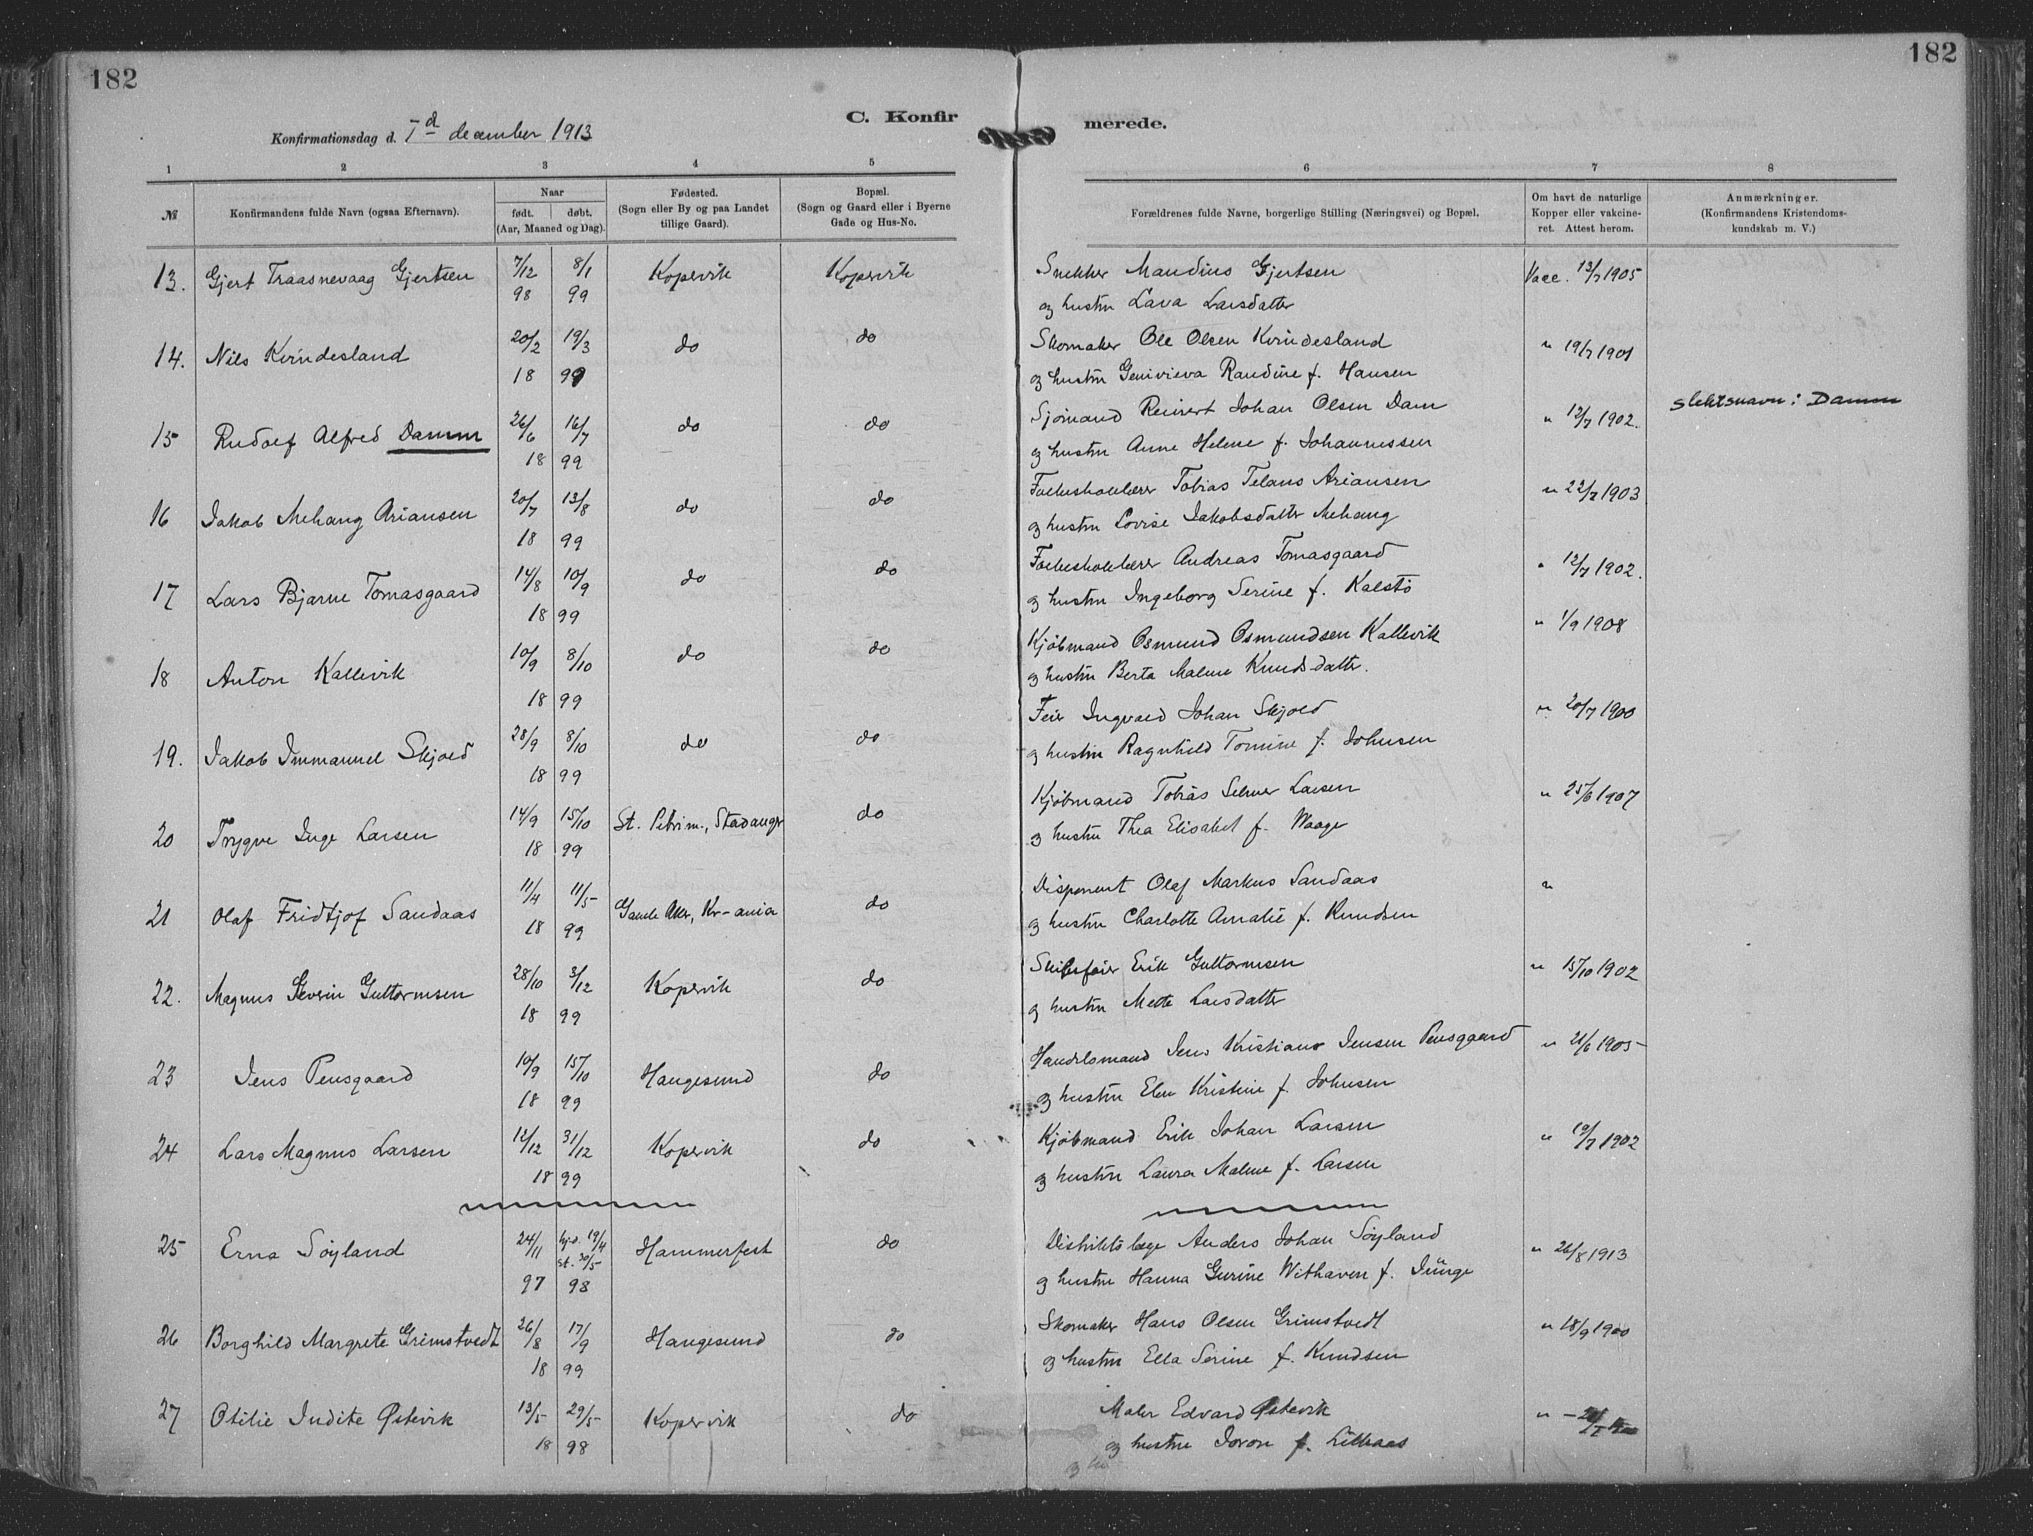 182
182
C. Konfir
merede.
Konfirmationsdag d. 7d december 1913
1 2 3 4 5
6 7 8
№ Konfirmandens fulde Navn (ogsaa Efternavn).
Naar
født. døbt.
(Aar, Maaned og Dag).
Fødested.
(Sogn eller By og paa Landet
tillige Gaard).
Bopæl.
(Sogn og Gaard eller i Byerne
Gade og Hus-No.
Forældrenes fulde Navne, borgerlige Stilling (Næringsvei) og Bopæl.
Om havt de naturlige
Kopper eller vakcine-
ret. Attest herom.
Anmærkninger.
(Konfirmandens Kristendoms-
kundskab m. V.)
13. Gjert Traasnevaag Gjertsen 7/12 8/1 Kopervik Kopervik Snekker Mandius Gjertsen Vacc. 13/7 1905
98 99 og hustru Lava Larsdatter
14. Nils Kvindesland 20/2 19/3 do do Skomaker Ole Olsen Kvindesland " 19/7 1901
18 99 og hustru Genivieva Randine f. Hansen
15 Rudolf Alfred Damm 26/6 16/7 do do Sjømand Reinert Johan Olsen Dam " 12/7 1902. slektsnavn: Damm
18 99 og hustru Anne Helene f. Johannessen
16 Jakob Mehang Ariansen 20/7 13/8 do do Folkeskolelærer Tobias Telans Ariansen " 22/7 1903
18 99 og hustru Lovise Jakobsdatter Mehang
17 Lars Bjarne Tomasgaard 14/8 10/9 do do Folkeskolelærer Andreas Tomasgaard " 12/7 1902.
18 99 og hustru Ingeborg Serine f. Kalstø
18 Anton Kallevik 10/9 8/10 do do Kjøbmand Osmund Osmundsen Kallevik " 1/9 1908
18 99 og hustru Berta Malene Knudsdatter.
19. Jakob Immanuel Skjold 28/9 8/10 do do Feier Ingvald Johan Skjold " 20/7 1900
18 99 og hustru Ragnhild Tomine f. Johnsen
20 Trygve Inge Larsen 14/9 15/10 St. Petri m., Stavanger do Kjøbmand Tobias Selmer Larsen " 25/6 1907
18 99 og hustru Thea Elisabet f. Waage
21 Olaf Fridtjof Sandaas 11/4 11/5 Gamle Aker, Kr-ania do Disponent Olaf Markus Sandaas "
18 99 og hustru Charlotte Amalie f. Knudsen
22. Magnus Severin Guttormsen 28/10 3/12 Kopervik do Skibsfører Erik Guttormsen " 15/10 1902
18 99 og hustru Mette Larsdatter
23 Jens Pensgaard 10/9 15/10 Haugesund do Handelsmand Jens Kristians Jensen Pensgaard " 21/6 1905
18 99 og hustru Elen Kristine f. Johnsen
24 Lars Magnus Larsen 12/12 31/12 Kopervik do Kjøbmand Erik Johan Larsen " 19/7 1902
18 99 og hustru Laura Malene f. Larsen
25 Erna Søyland 24/11 hj.d. 19/4 Hammerfest do Distriktslæge Anders Johan Søyland " 26/8 1913
st. 30/5
97 98 og hustru Hanna Gurine Withaven f. Jünge
26 Borghild Margrete Grimstvedt 26/8 17/9 Haugesund do Skomaker Hans Olsen Grimstvedt " 18/9 1900
18 99 og hustru Ella Serine f. Knudsen
27 Otilie Indite Østevik 13/5 29/5 Kopervik do Maler Edvard Østevik "
18 98 og hustru Joron f. Lilleaas